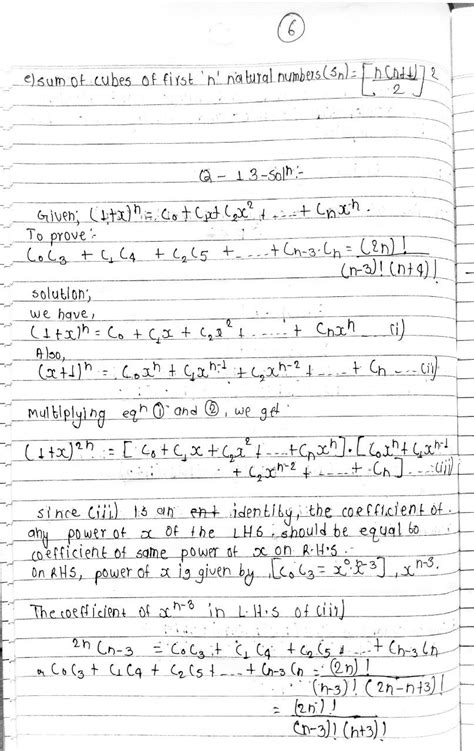 6
e) sum of cubes of first 'n' natural numbers (Sn) = [n(n+1)/2]²
Q - 13 - solⁿ:-
Given; (1+x)ⁿ = C₀ + C₁x + C₂x² + ..... + Cₙxⁿ.
To prove:-
C₀C₃ + C₁C₄ + C₂C₅ + ..... + Cₙ₋₃.Cₙ = (2n)! / (n-3)! (n+4)!
solution;
we have,
(1+x)ⁿ = C₀ + C₁x + C₂x² + ..... + Cₙxⁿ __ (i)
Also,
(x+1)ⁿ = C₀xⁿ + C₁xⁿ⁻¹ + C₂xⁿ⁻² + ..... + Cₙ --- (ii)
multiplying eqⁿ ① and ②, we get
(1+x)²ⁿ = [C₀ + C₁x + C₂x² + ..... + Cₙxⁿ] . [C₀xⁿ + C₁xⁿ⁻¹
+ C₂xⁿ⁻² + ..... + Cₙ] ... (iii)
since (iii) is an identity, the coefficient of
any power of x of the LHS should be equal to
coefficient of same power of x on R.H.S.
On RHS, power of x is given by [C₀C₃ = x⁰.xⁿ⁻³], xⁿ⁻³.
The coefficient of xⁿ⁻³ in L.H.S of (iii)
2n Cₙ₋₃ = C₀C₃ + C₁C₄ + C₂C₅ + ... + Cₙ₋₃Cₙ
C₀C₃ + C₁C₄ + C₂C₅ + ..... + Cₙ₋₃Cₙ = (2n)! / (n-3)! (2n-n+3)!
= (2n)! / (n-3)! (n+3)!